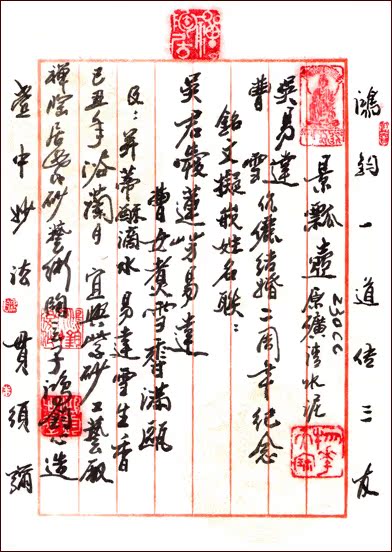 鴻鈞一道傳三友
景瓢壺 原礦清水泥 230cc
吳易達
曹雪 伉儷結婚二周年紀念
銘文擬 姓名联：
吳君愛蓮 易達
曹女煮雪香滿甌
又：并蒂酥滴水 易達雪生香
己丑年浴蘭月 宜興紫砂工藝廠
禪陶居 砂藝術 鴻 造
壺中妙法貫須彌